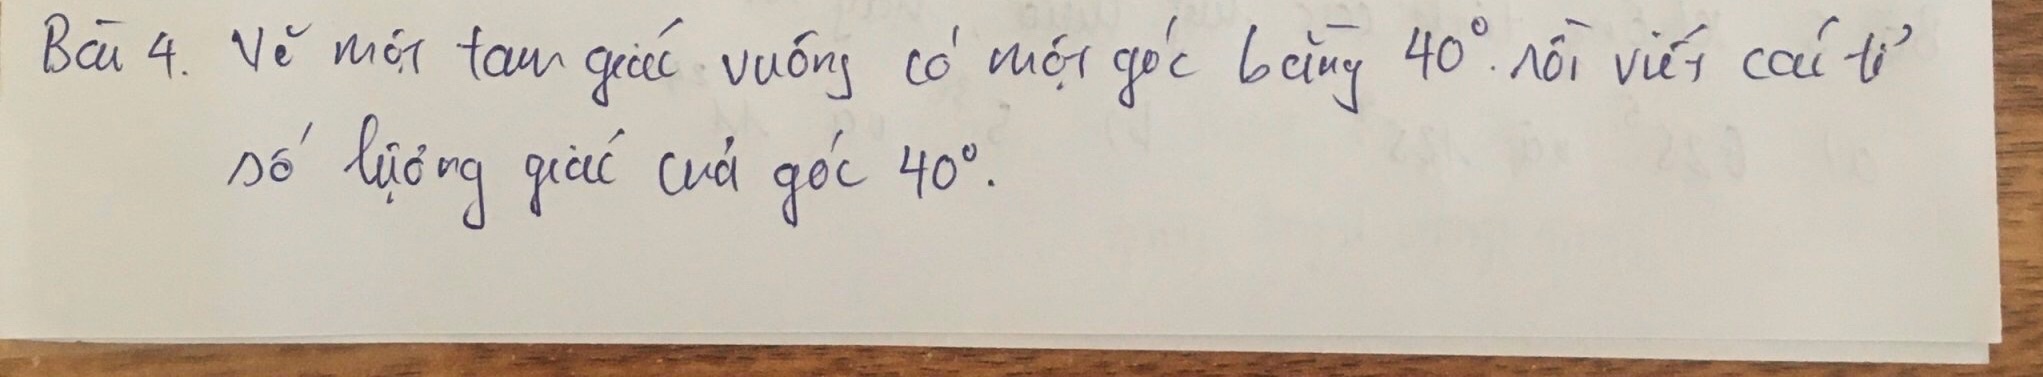 Bài 4. Vẽ một tam giác vuông có một góc bằng 40°. rồi viết các tỉ
số lượng giác của góc 40°.